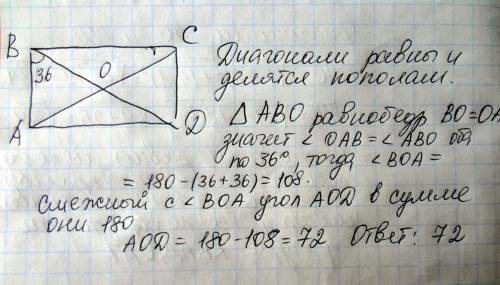 B C
36 O
A D
Диагонали равны и
делятся пополам.
△ ABO равнобедр BO=OA
значит ∠ OAB = ∠ ABO оба
по 36°, тогда ∠ BOA =
= 180-(36+36)=108.
смежный с ∠ BOA угол AOD в сумме
они 180
AOD = 180-108=72 Ответ: 72